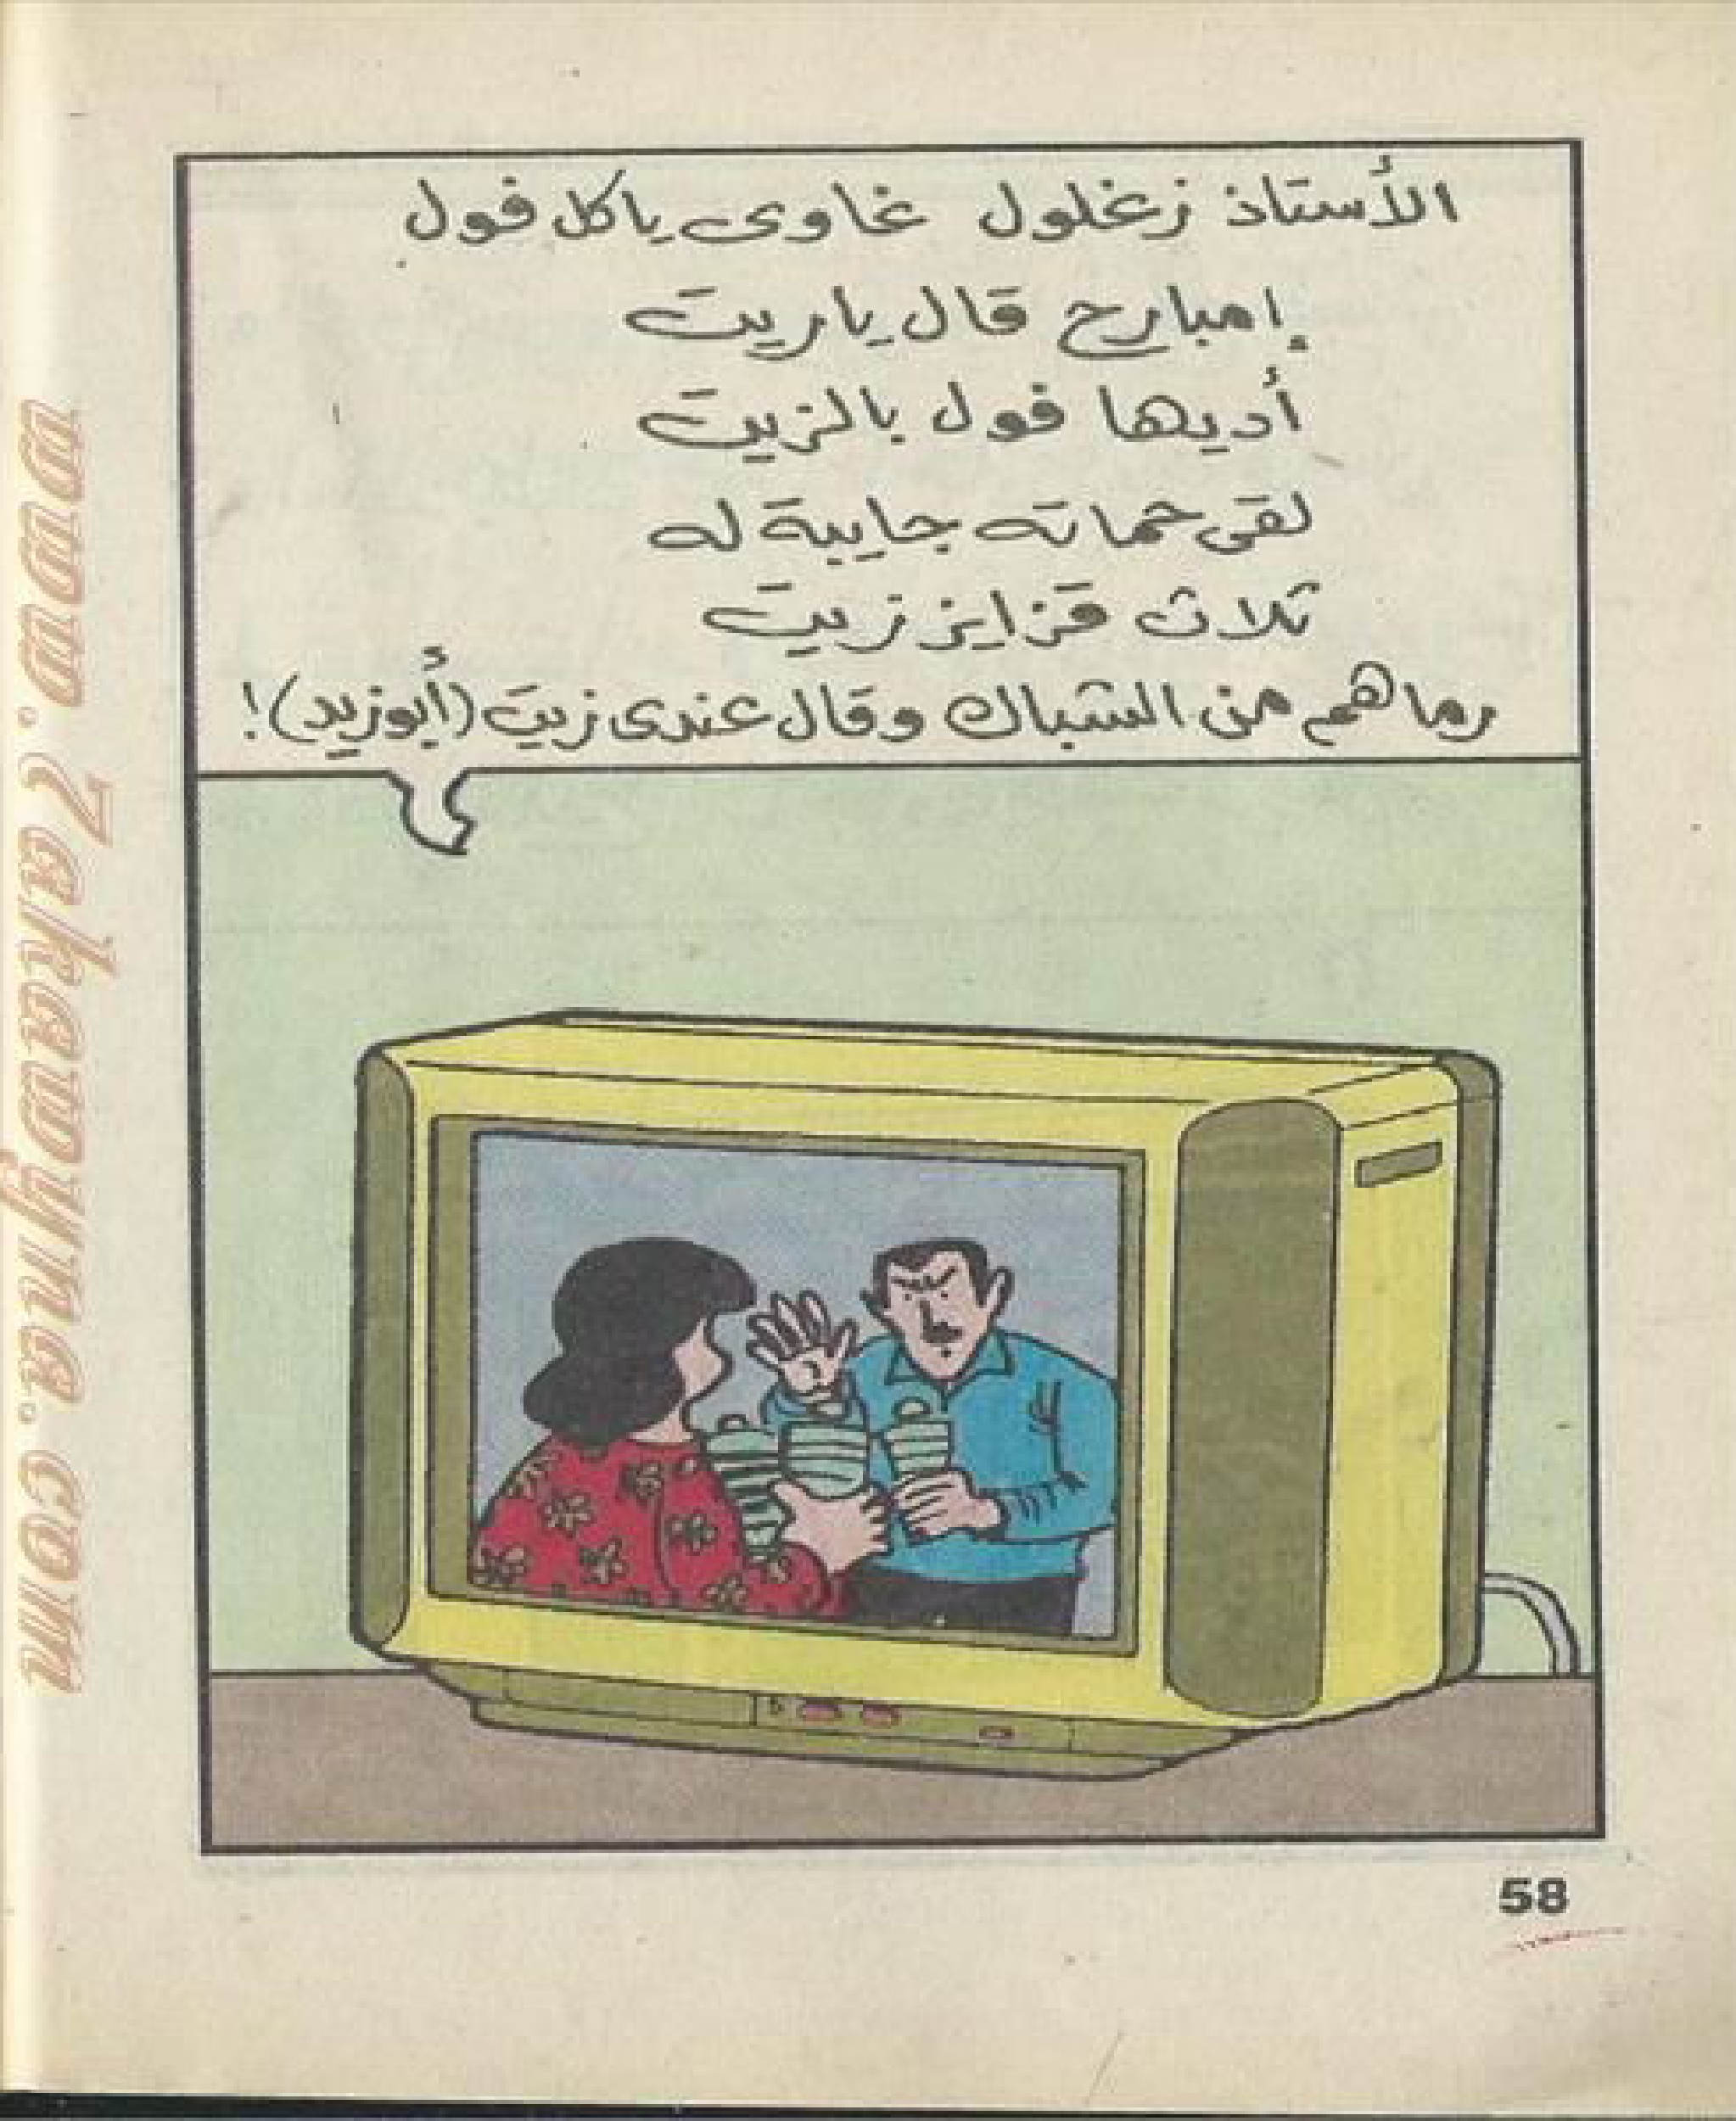 الأستاذ زغلول غاوى ياكل فول
إمبارح قال ياريت
أديها فول بالزيت
لقى حماته جايبة له
ثلاث قزايز زيت
رماهم من الشباك وقال عندى زيت (أبوزيد)!
58
www.7akawyna.com